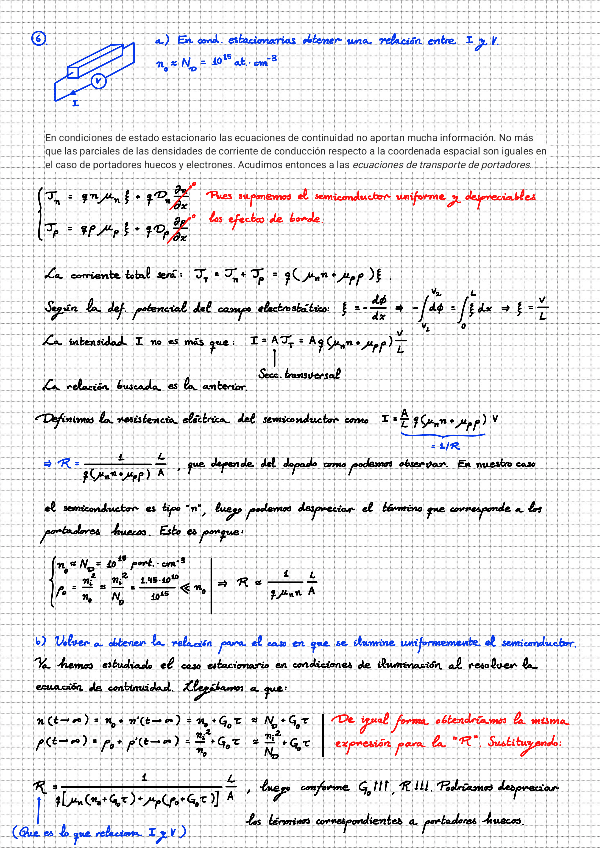 6 a) En cond. estacionarias obtener una relación entre I y V.
n₀ ≈ N_D = 10¹⁵ at. cm⁻³
V
I
En condiciones de estado estacionario las ecuaciones de continuidad no aportan mucha información. No más
que las parciales de las densidades de corriente de conducción respecto a la coordenada espacial son iguales en
el caso de portadores huecos y electrones. Acudimos entonces a las ecuaciones de transporte de portadores.
J_n = q n μ_n ξ + q D_n ∂n/∂x → 0 Pues suponemos el semiconductor uniforme y despreciables
los efectos de borde.
J_p = q p μ_p ξ + q D_p ∂p/∂x → 0
La corriente total será: J_T = J_n + J_p = q(μ_n n + μ_p p)ξ.
Según la def. potencial del campo electrostático: ξ = -dφ/dx ⇒ -∫_{V₁}^{V₂} dφ = ∫_0^L ξ dx ⇒ ξ = V/L
La intensidad I no es más que: I = A J_T = A q(μ_n n + μ_p p) V/L
Secc. transversal
La relación buscada es la anterior.
Definimos la resistencia eléctrica del semiconductor como I = A/L q(μ_n n + μ_p p) V
= 1/R
⇒ R = 1/(q(μ_n n + μ_p p)) L/A, que depende del dopado como podemos observar. En nuestro caso
el semiconductor es tipo "n", luego podemos despreciar el término que corresponde a los
portadores huecos. Esto es porque:
n₀ ≈ N_D = 10¹⁵ port. cm⁻³
p₀ = n_i²/n₀ ≈ n_i²/N_D = 1.45·10¹⁰/10¹⁵ ≪ n₀ ⇒ R ≈ 1/(q μ_n n) L/A
b) Volver a obtener la relación para el caso en que se ilumine uniformemente el semiconductor.
Ya hemos estudiado el caso estacionario en condiciones de iluminación al resolver la
ecuación de continuidad. Llegábamos a que:
n(t→∞) = n₀ + n'(t→∞) = n₀ + G₀τ ≈ N_D + G₀τ De igual forma obtendríamos la misma
p(t→∞) = p₀ + p'(t→∞) = n_i²/n₀ + G₀τ ≈ n_i²/N_D + G₀τ expresión para la "R". Sustituyendo:
R = 1/(q[μ_n(n₀+G₀τ) + μ_p(p₀+G₀τ)]) L/A, luego conforme G₀↑↑↑, R↓↓↓. Podríamos despreciar
los términos correspondientes a portadores huecos.
(Que es lo que relaciona I y V)